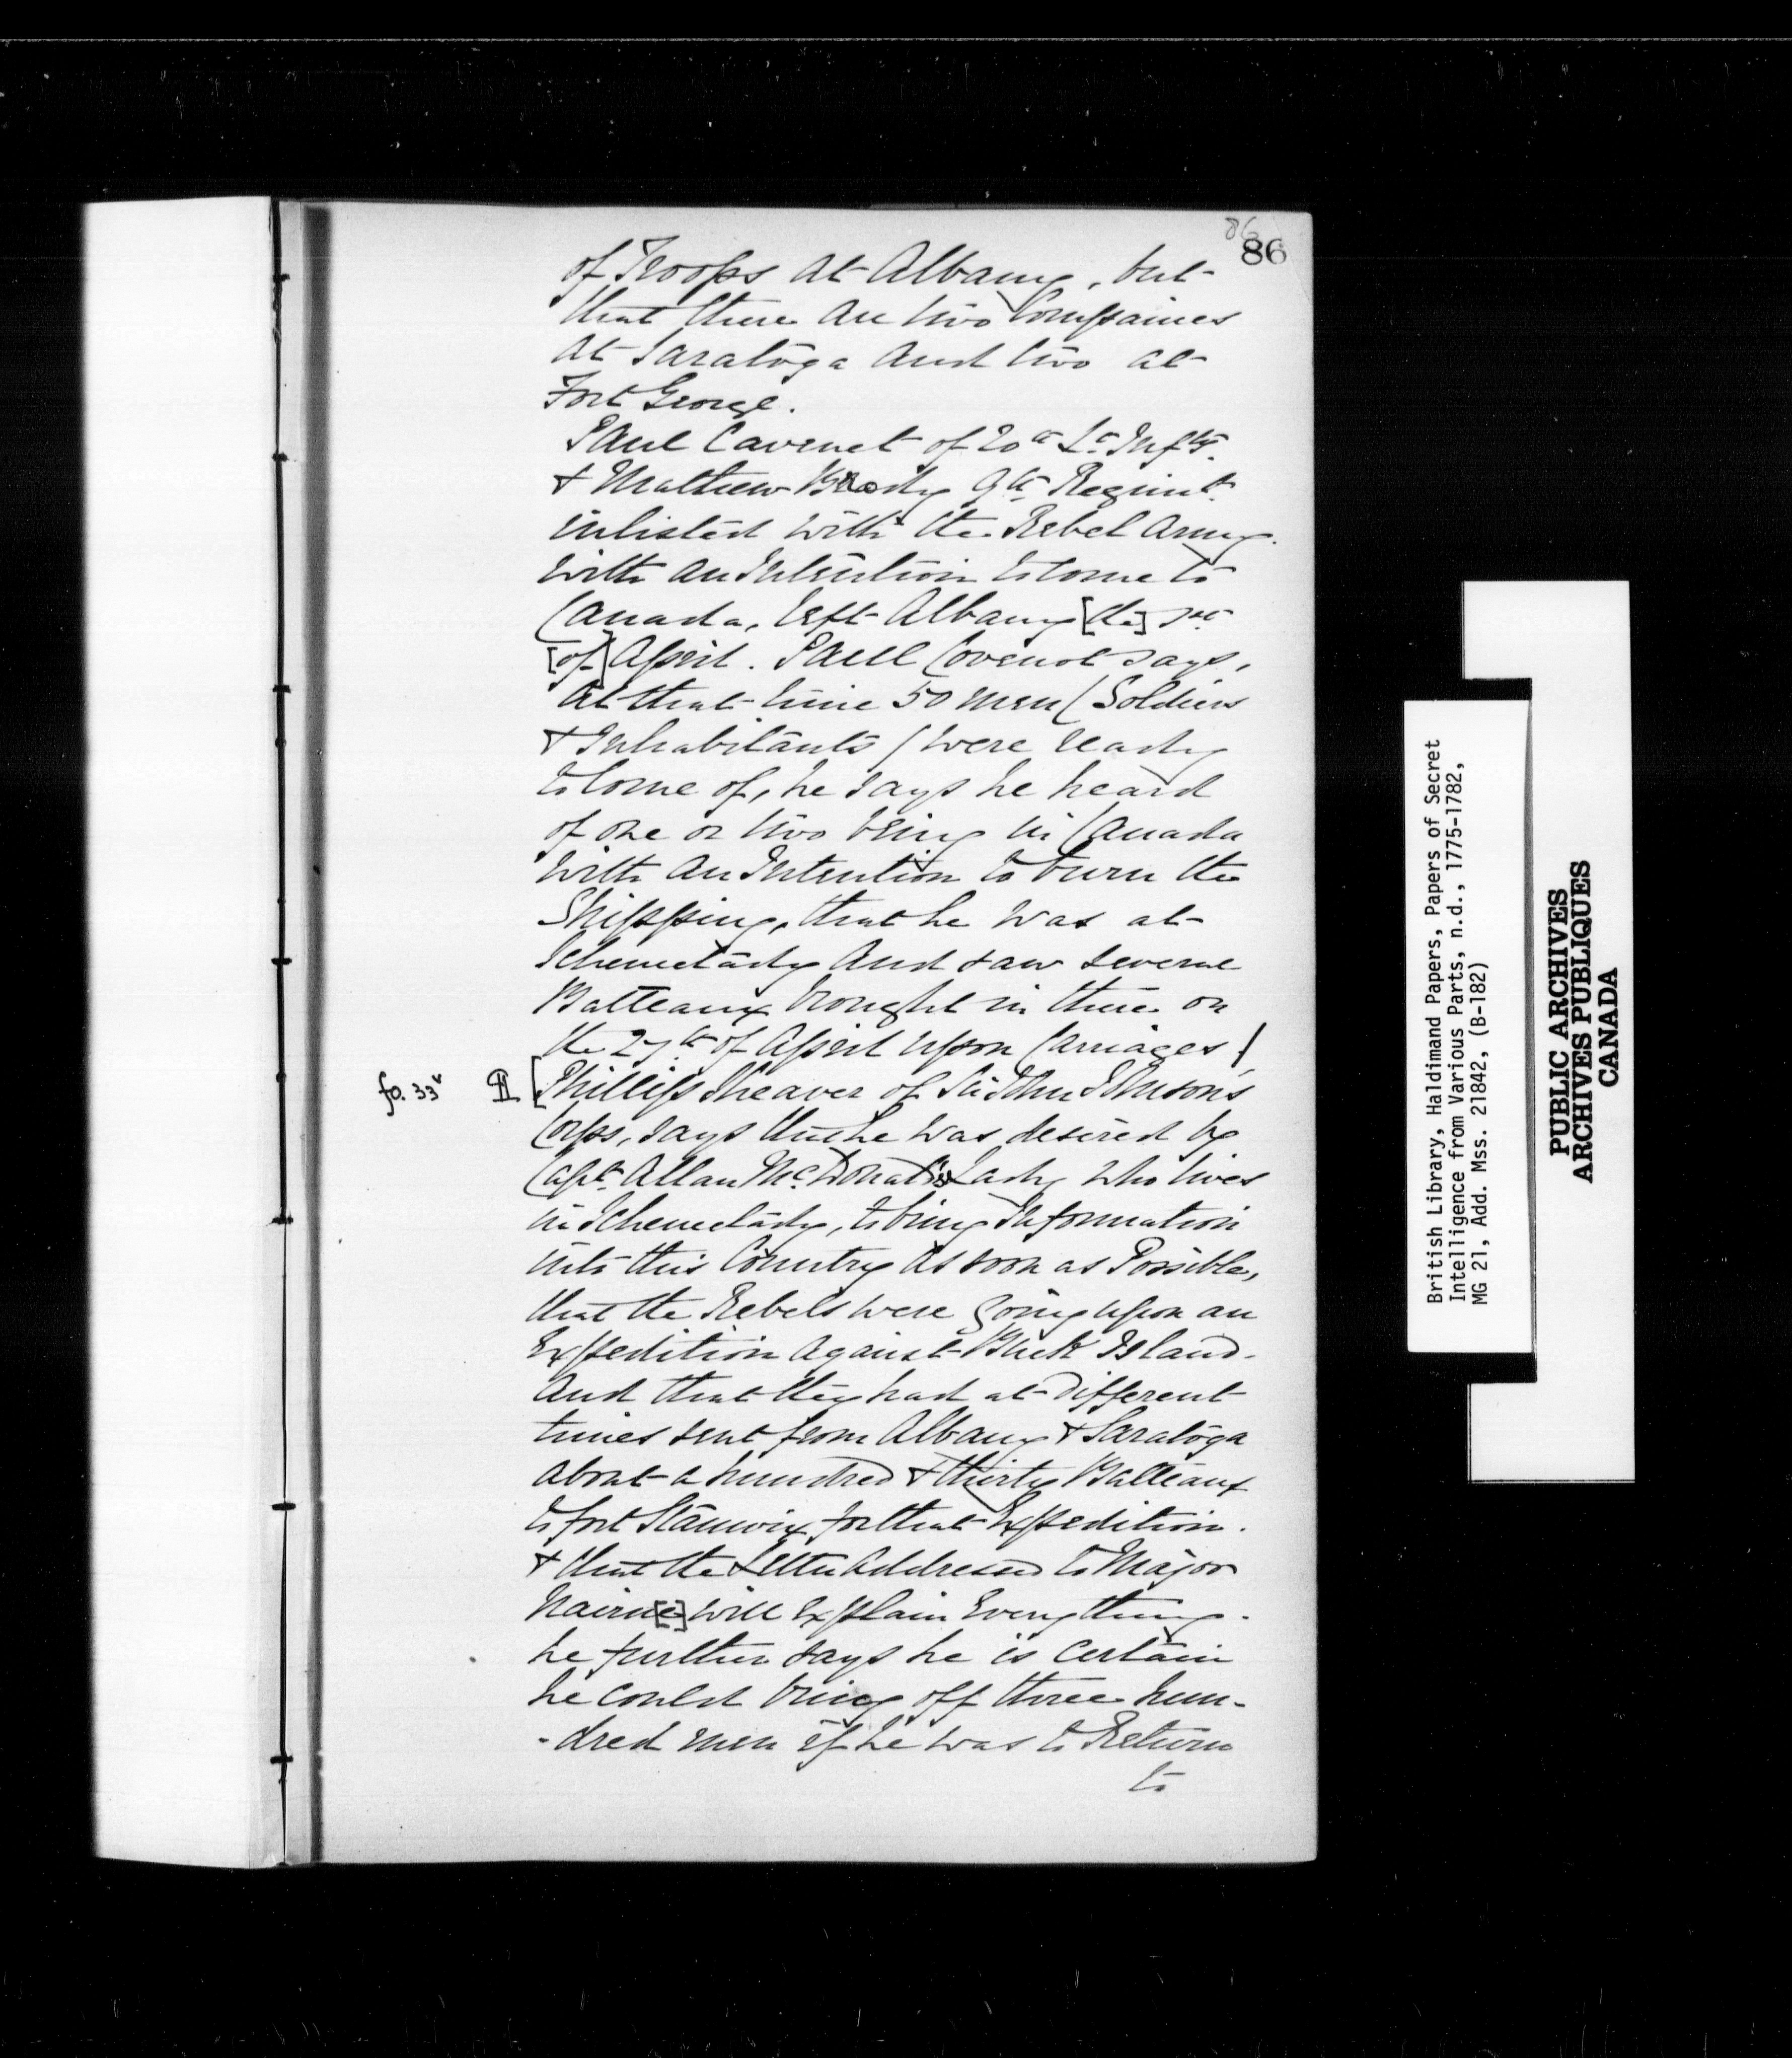 86
86
of Troops at Albany, but
that there are two Companies
at Saratoga and two at
Fort George.
Paul Cavenet of 20th Lt. Infty.
& Mathew Brody 9th Regimt.
inlisted with the Rebel Army.
with an Intention to come to
Canada, left Albany [the]
[of] April. Paul Covenot says,
at that time 50 men (Soldiers
& Inhabitants / were ready
to come of, he says he heard
of one or two being in Canada
with an Intention to burn the
Shipping, that he was at
Schenectady and saw several
Batteaux brought in there on
the 27th of April upon Carriages /
fo. 33v [Phillip Sheaver of Sir John Johnson's
Corps, says that he was desired by
Capt. Allan McDonald's Lady who lives
in Schenectady, to bring Information
into this Country as soon as Possible,
that the Rebels were going upon an
Expedition against Buck Island.
and that they had at different
times sent from Albany & Saratoga
about a hundred & thirty Batteaux
to fort Stanwix for that Expedition.
& that the Letter Addressed to Major
Nairn[e] will explain Every thing.
he further says he is certain
he could bring off three hun-
-dred men if he was to Return
to
British Library, Haldimand Papers, Papers of Secret
Intelligence from Various Parts, n.d., 1775-1782,
MG 21, Add. Mss. 21842, (B-182)
PUBLIC ARCHIVES
ARCHIVES PUBLIQUES
CANADA